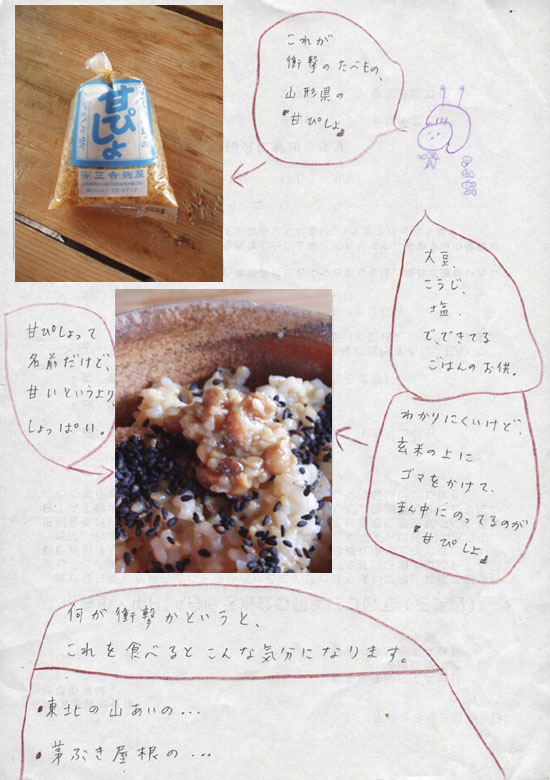 これが
衝撃のたべもの、
山形県の
『甘ぴしょ』
甘ぴしょ
三吉麹屋
大豆、
こうじ、
塩、
で、できてる
ごはんのお供。
甘ぴしょって
名前だけど、
甘いというより
しょっぱい。
わかりにくいけど、
玄米の上に
ゴマをかけて、
まん中にのってるのが
『甘ぴしょ』
何が衝撃かというと、
これを食べるとこんな気分になります。
•東北の山あいの...
•茅ぶき屋根の...